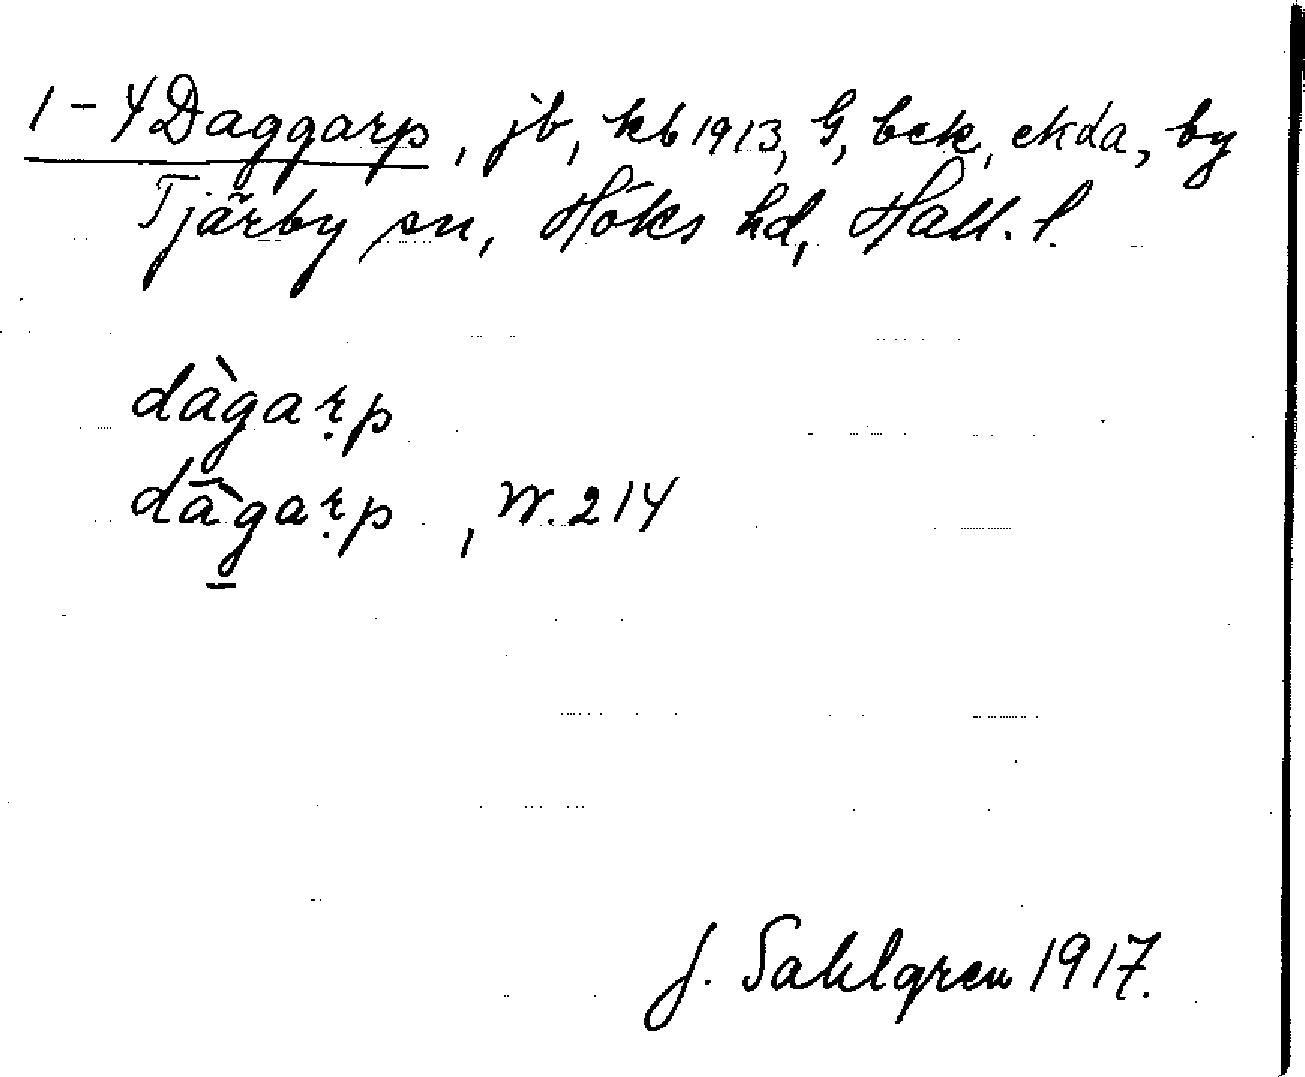 1-4 Daggarp, jb, kb 1913, G, bck, ekda, by
Tjärby sn, Höks hd, Hall. l.
dàgaṛp
dā̀gaṛp, W. 214
J. Sahlgren 1917.